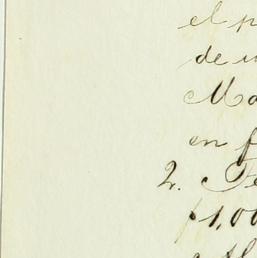 el p
de u
Ma
en f
2. Fe
$1,00